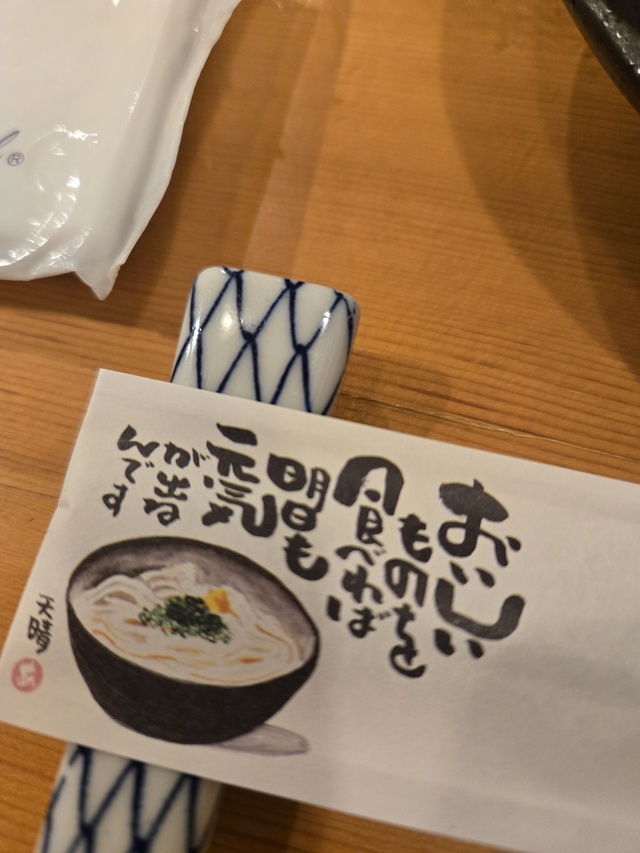 おいしい
ものちと
食べれば
明日も
元気
が出る
んです
天晴
®